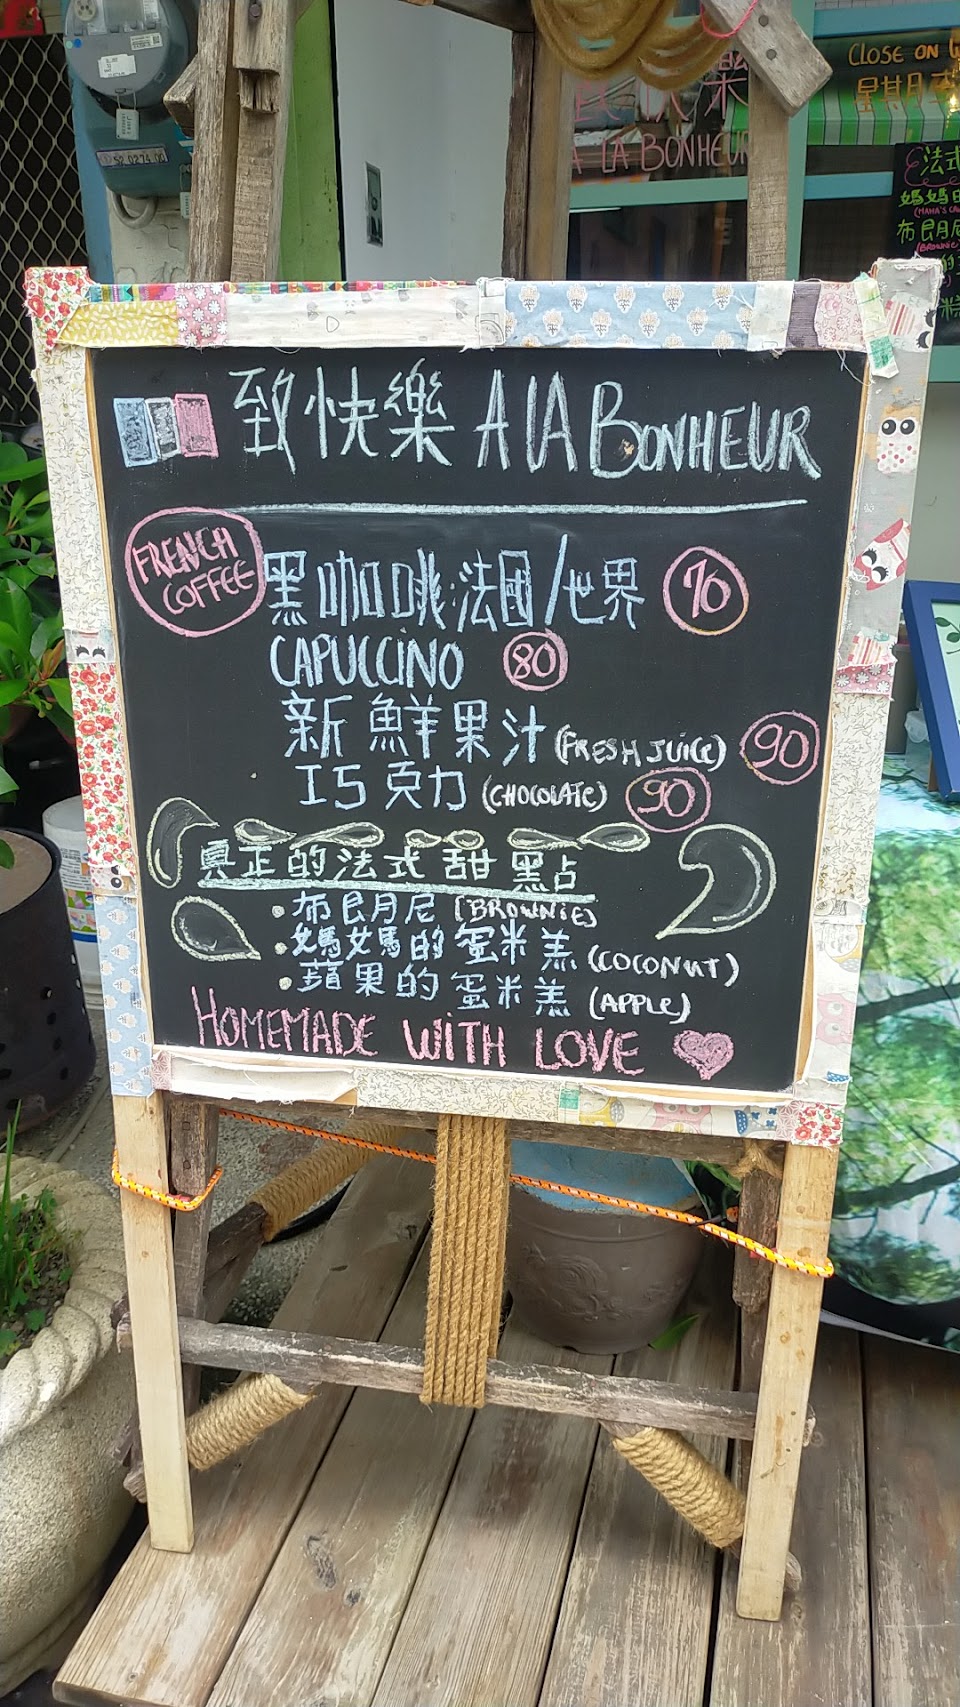 CLOSE ON
星期
A LA BONHEUR
法式
媽媽
布朗尼
(BROWNIE)
致快樂 A LA BONHEUR
FRENCH COFFEE
黑咖啡法國/世界 70
CAPUCCINO 80
新鮮果汁 (FRESH JUICE) 90
巧克力 (CHOCOLATE) 90
真正的法式甜點
·布朗尼 (BROWNIE)
·媽媽的蛋糕 (COCONUT)
·蘋果的蛋糕 (APPLE)
HOMEMADE WITH LOVE